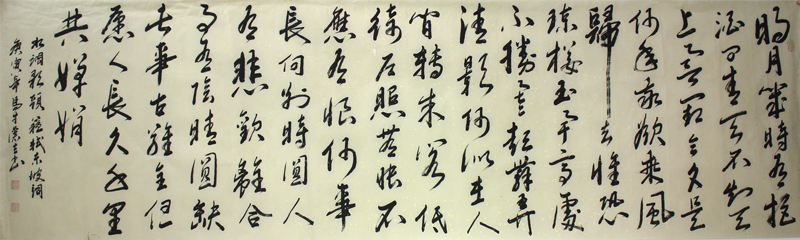 明月幾時有把
酒問青天不知天
上宮闕今夕是
何年我欲乘風
歸去惟恐
瓊樓玉宇高處
不勝寒起舞弄
清影何似在人
間轉朱閣低
綺戶照無眠不
應有恨何事
長向別時圓人
有悲歡離合
月有陰晴圓缺
此事古難全但
願人長久千里
共嬋娟
水調歌頭蘇軾東坡詞
庚寅年